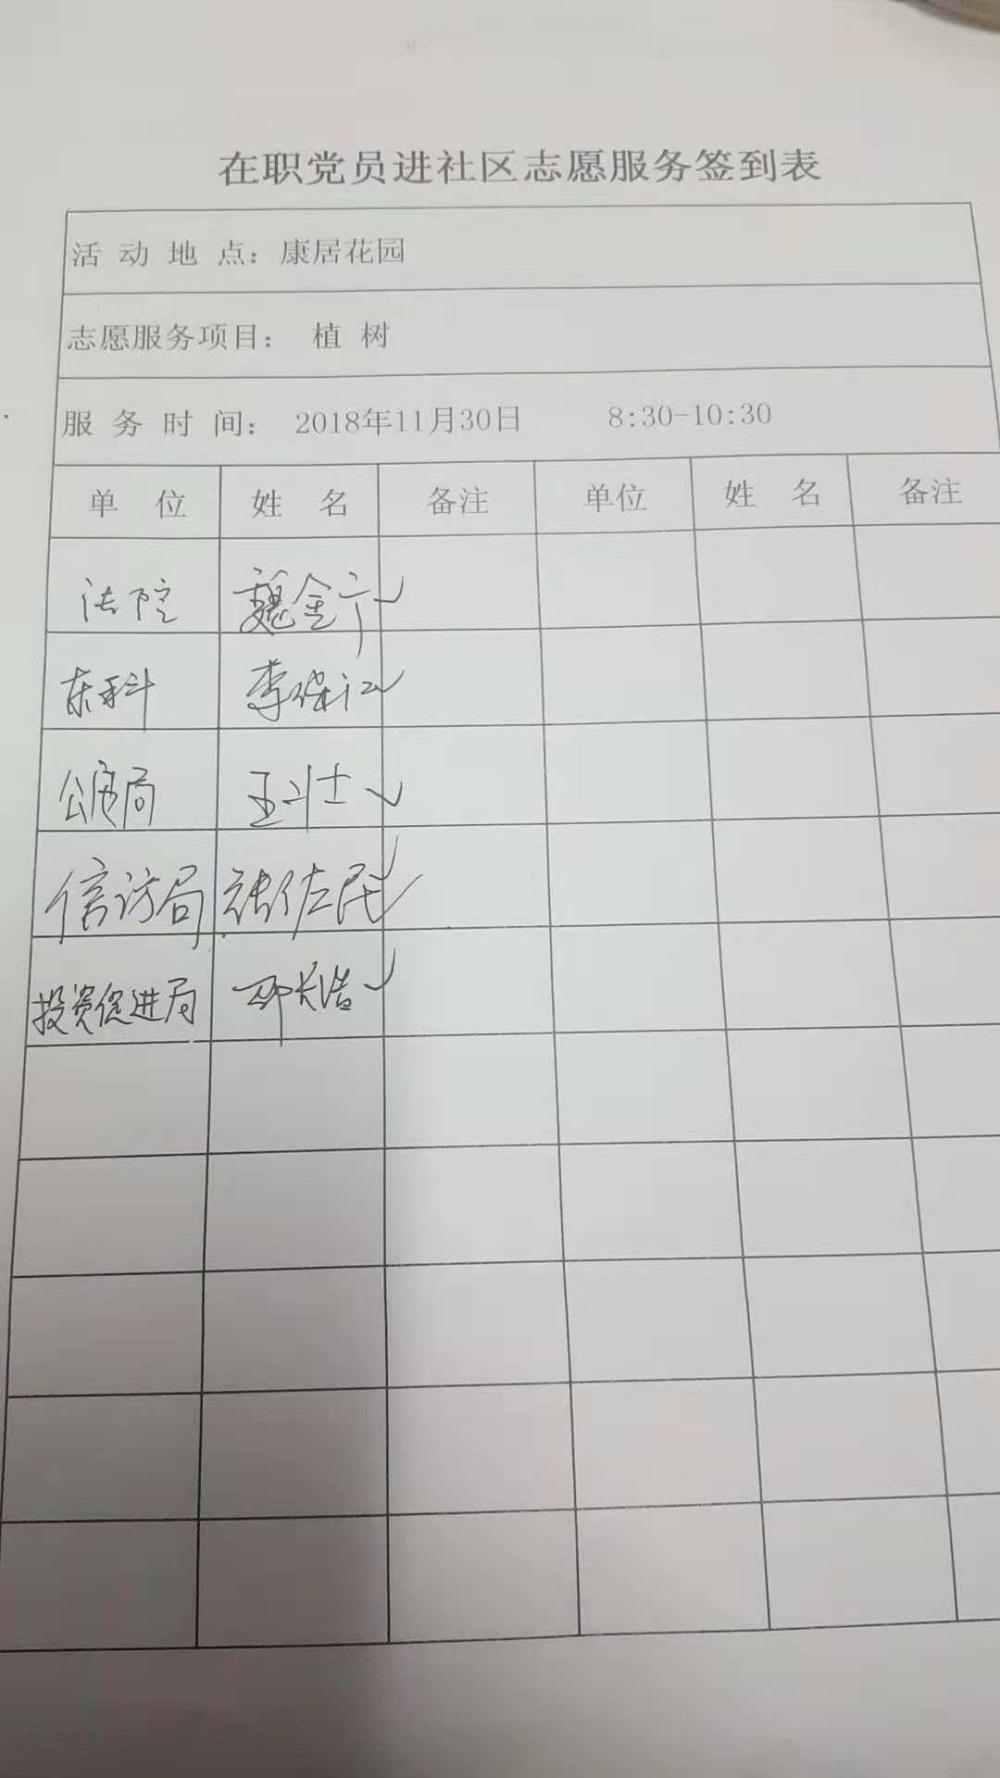 在职党员进社区志愿服务签到表
活动地点：康居花园
志愿服务项目： 植树
服务时间： 2018年11月30日 8:30-10:30
单位 姓名 备注 单位 姓名 备注
法院 魏金宁 ✓
东科 李保江 ✓
局 王斗士 ✓
信访局 张佐民 ✓
投资促进局 邵长浩 ✓